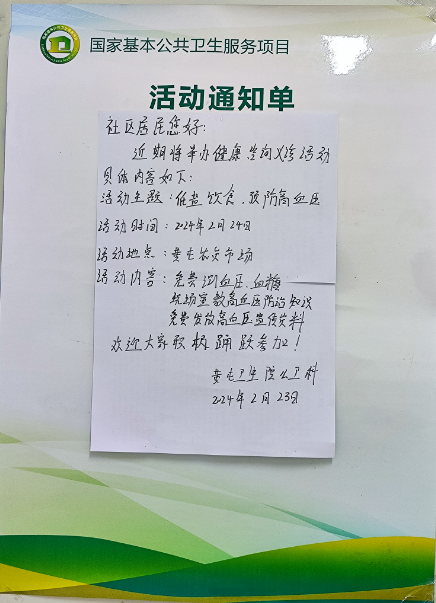 国家基本公共卫生服务项目
活动通知单
社区居民您好:
近期将举办健康咨询义诊活动
具体内容如下:
活动主题:低盐饮食、预防高血压
活动时间:2024年2月24日
活动地点:黄屯农贸市场
活动内容:免费测血压、血糖
活动宣教高血压防治知识
免费发放高血压宣传资料
欢迎大家积极踊跃参加!
黄屯卫生院公卫科
2024年2月23日